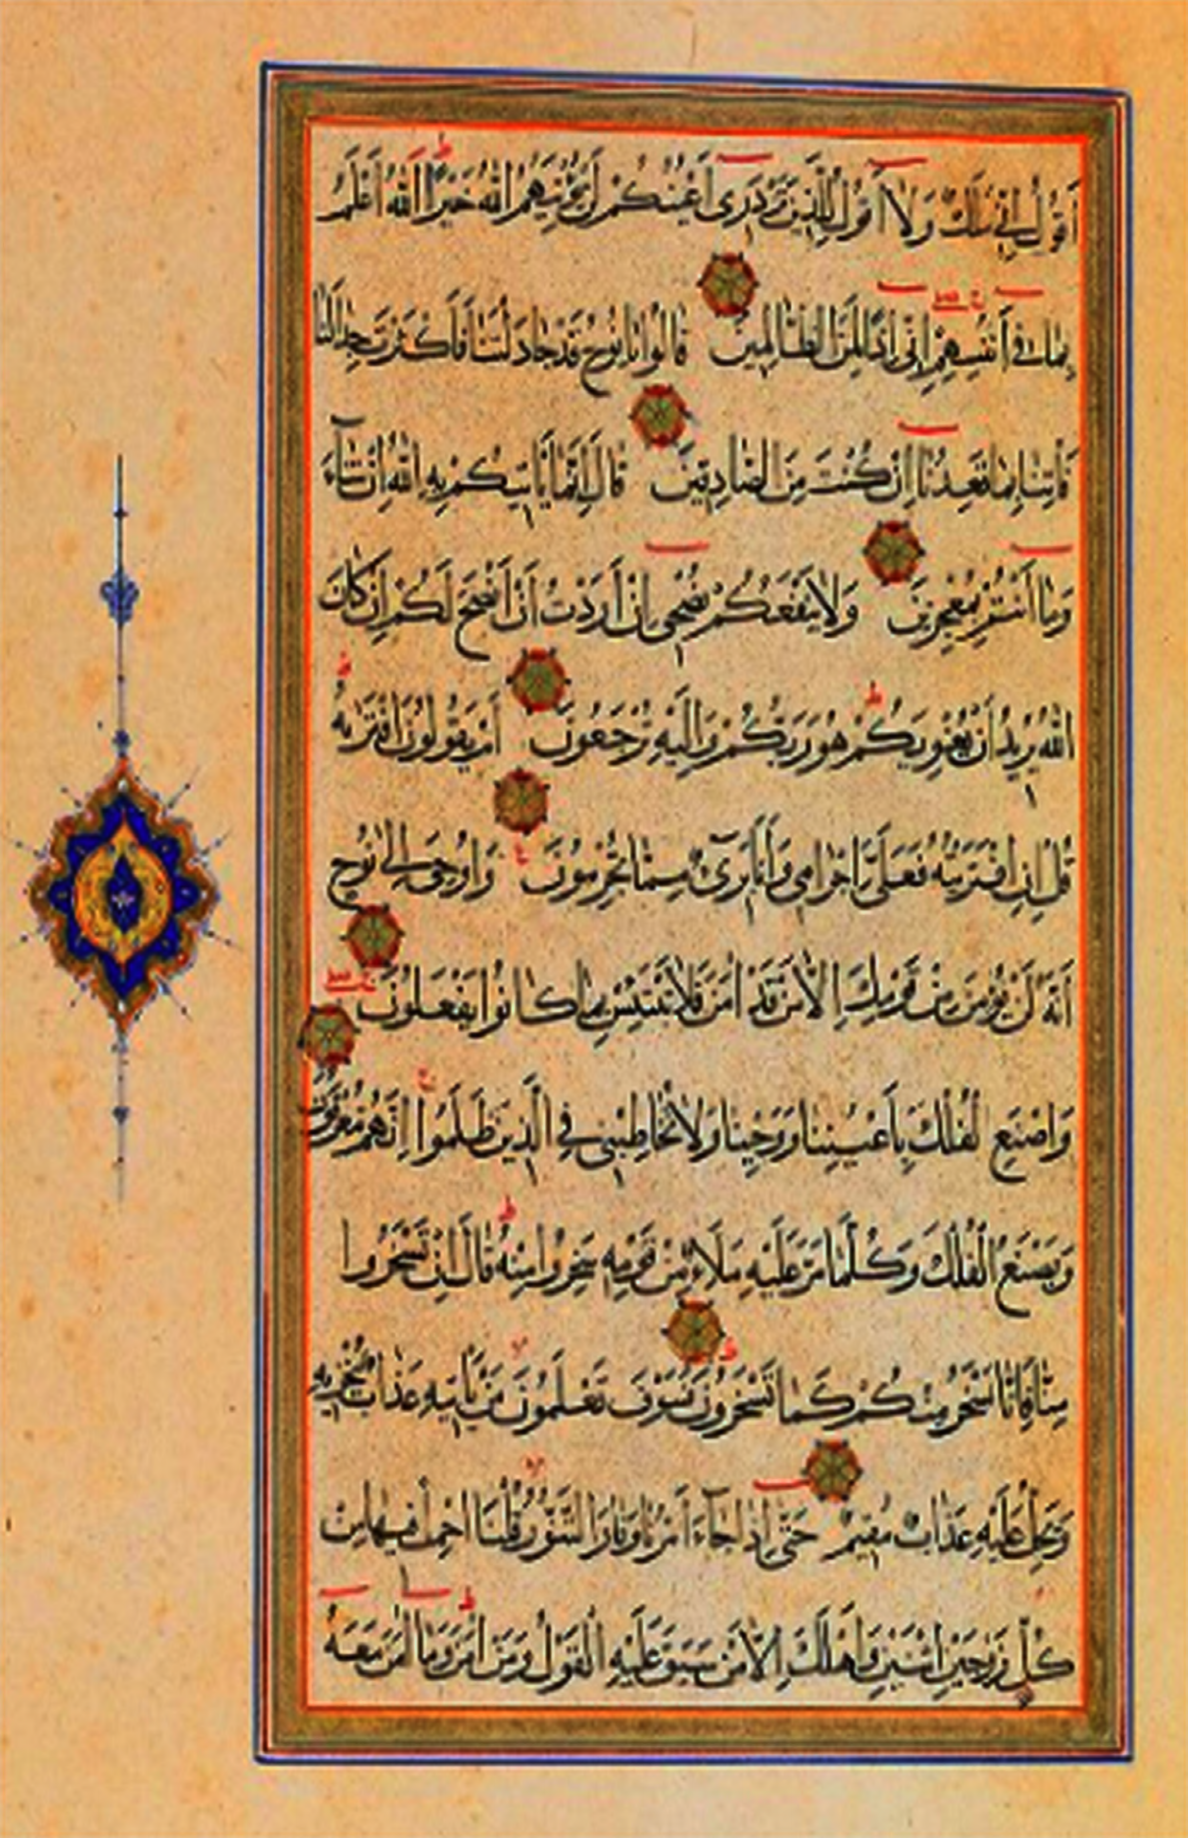 أَقُولُ إِنِّي مَلَكٌ وَلَا أَقُولُ لِلَّذِينَ تَزْدَرِي أَعْيُنُكُمْ لَنْ يُؤْتِيَهُمُ اللَّهُ خَيْرًا اللَّهُ أَعْلَمُ
بِمَا فِي أَنْفُسِهِمْ إِنِّي إِذًا لَمِنَ الظَّالِمِينَ قَالُوا يَا نُوحُ قَدْ جَادَلْتَنَا فَأَكْثَرْتَ جِدَالَنَا
فَأْتِنَا بِمَا تَعِدُنَا إِنْ كُنْتَ مِنَ الصَّادِقِينَ قَالَ إِنَّمَا يَأْتِيكُمْ بِهِ اللَّهُ إِنْ شَاءَ
وَمَا أَنْتُمْ بِمُعْجِزِينَ وَلَا يَنْفَعُكُمْ نُصْحِي إِنْ أَرَدْتُ أَنْ أَنْصَحَ لَكُمْ إِنْ كَانَ
اللَّهُ يُرِيدُ أَنْ يُغْوِيَكُمْ هُوَ رَبُّكُمْ وَإِلَيْهِ تُرْجَعُونَ أَمْ يَقُولُونَ افْتَرَيهُ
قُلْ إِنِ افْتَرَيْتُهُ فَعَلَيَّ إِجْرَامِي وَأَنَا بَرِيءٌ مِمَّا تُجْرِمُونَ وَأُوحِيَ إِلَى نُوحٍ
أَنَّهُ لَنْ يُؤْمِنَ مِنْ قَوْمِكَ إِلَّا مَنْ قَدْ آمَنَ فَلَا تَبْتَئِسْ بِمَا كَانُوا يَفْعَلُونَ
وَاصْنَعِ الْفُلْكَ بِأَعْيُنِنَا وَوَحْيِنَا وَلَا تُخَاطِبْنِي فِي الَّذِينَ ظَلَمُوا إِنَّهُمْ مُغْرَقُونَ
وَيَصْنَعُ الْفُلْكَ وَكُلَّمَا مَرَّ عَلَيْهِ مَلَأٌ مِنْ قَوْمِهِ سَخِرُوا مِنْهُ قَالَ إِنْ تَسْخَرُوا
مِنَّا فَإِنَّا نَسْخَرُ مِنْكُمْ كَمَا تَسْخَرُونَ فَسَوْفَ تَعْلَمُونَ مَنْ يَأْتِيهِ عَذَابٌ يُخْزِيهِ
وَيَحِلُّ عَلَيْهِ عَذَابٌ مُقِيمٌ حَتَّى إِذَا جَاءَ أَمْرُنَا وَفَارَ التَّنُّورُ قُلْنَا احْمِلْ فِيهَا مِنْ
كُلٍّ زَوْجَيْنِ اثْنَيْنِ وَأَهْلَكَ إِلَّا مَنْ سَبَقَ عَلَيْهِ الْقَوْلُ وَمَنْ آمَنَ وَمَا آمَنَ مَعَهُ